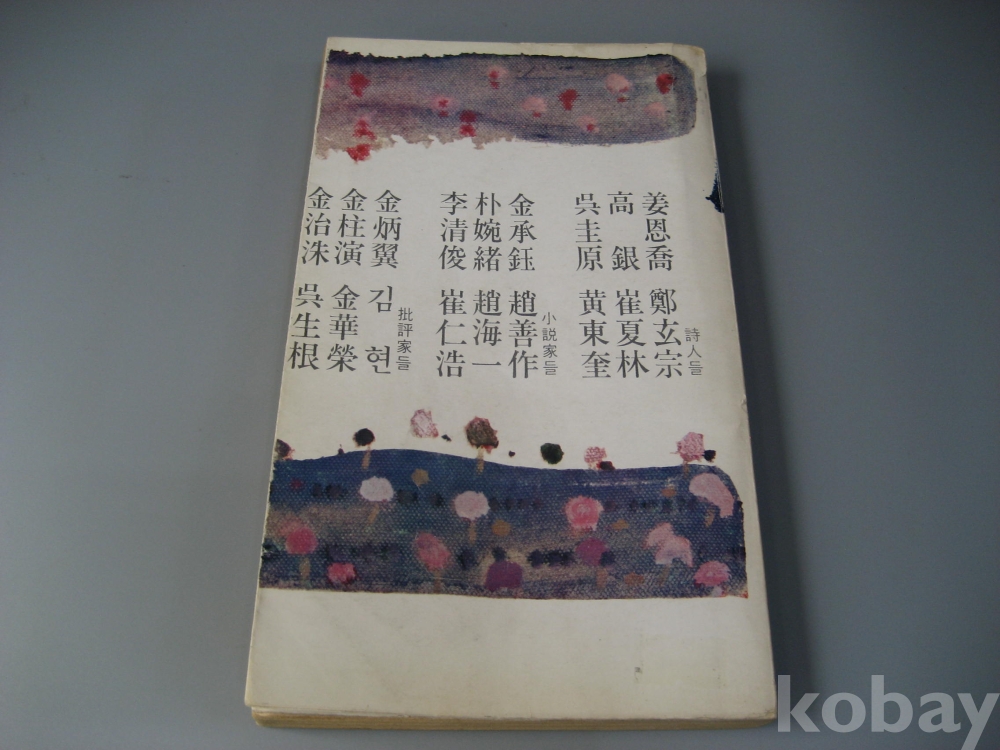 詩人들
姜恩喬 鄭玄宗
高銀 崔夏林
吳圭原 黄東奎
小説家들
金承鈺 趙善作
朴婉緖 趙海一
李清俊 崔仁浩
批評家들
金炳翼 김현
金柱演 金華榮
金治洙 吳生根
kobay